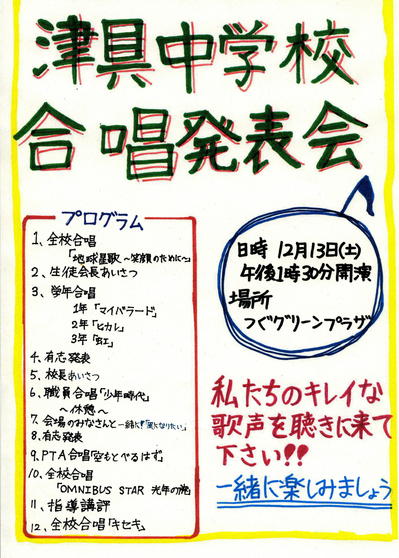 津具中学校
合唱発表会
プログラム
1、全校合唱
「地球星歌～笑顔のために～」
2、生徒会長あいさつ
3、学年合唱
1年「マイバラード」
2年「ヒカレ」
3年「虹」
4、有志発表
5、校長あいさつ
6、職員合唱「少年時代」
～休憩～
7、会場のみなさんと一緒に!「風になりたい」
8、有志発表
9、PTA合唱
10、全校合唱
「OMNIBUS STAR 光年の
11、指導講評
12、全校合唱「キセキ」
日時 12月13日(土)
午後1時30分開演
場所
つぐグリーンプラザ
私たちのキレイな
歌声を聴きに来て
下さい!!
一緒に楽しみましょう